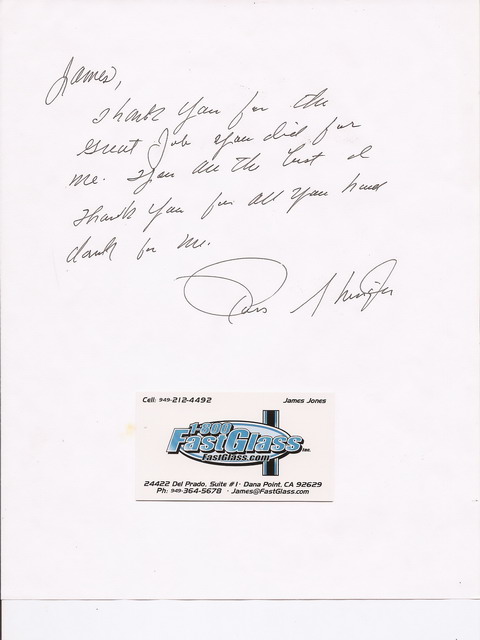 James,
Thank you for the
great job you did for
me. You are the best I
thank you for all you have
done for me.
Cell: 949-212-4492
James Jones
1-800
FastGlass Inc.
FastGlass.com
24422 Del Prado, Suite #1 · Dana Point, CA 92629
Ph: 949-364-5678 · James@FastGlass.com